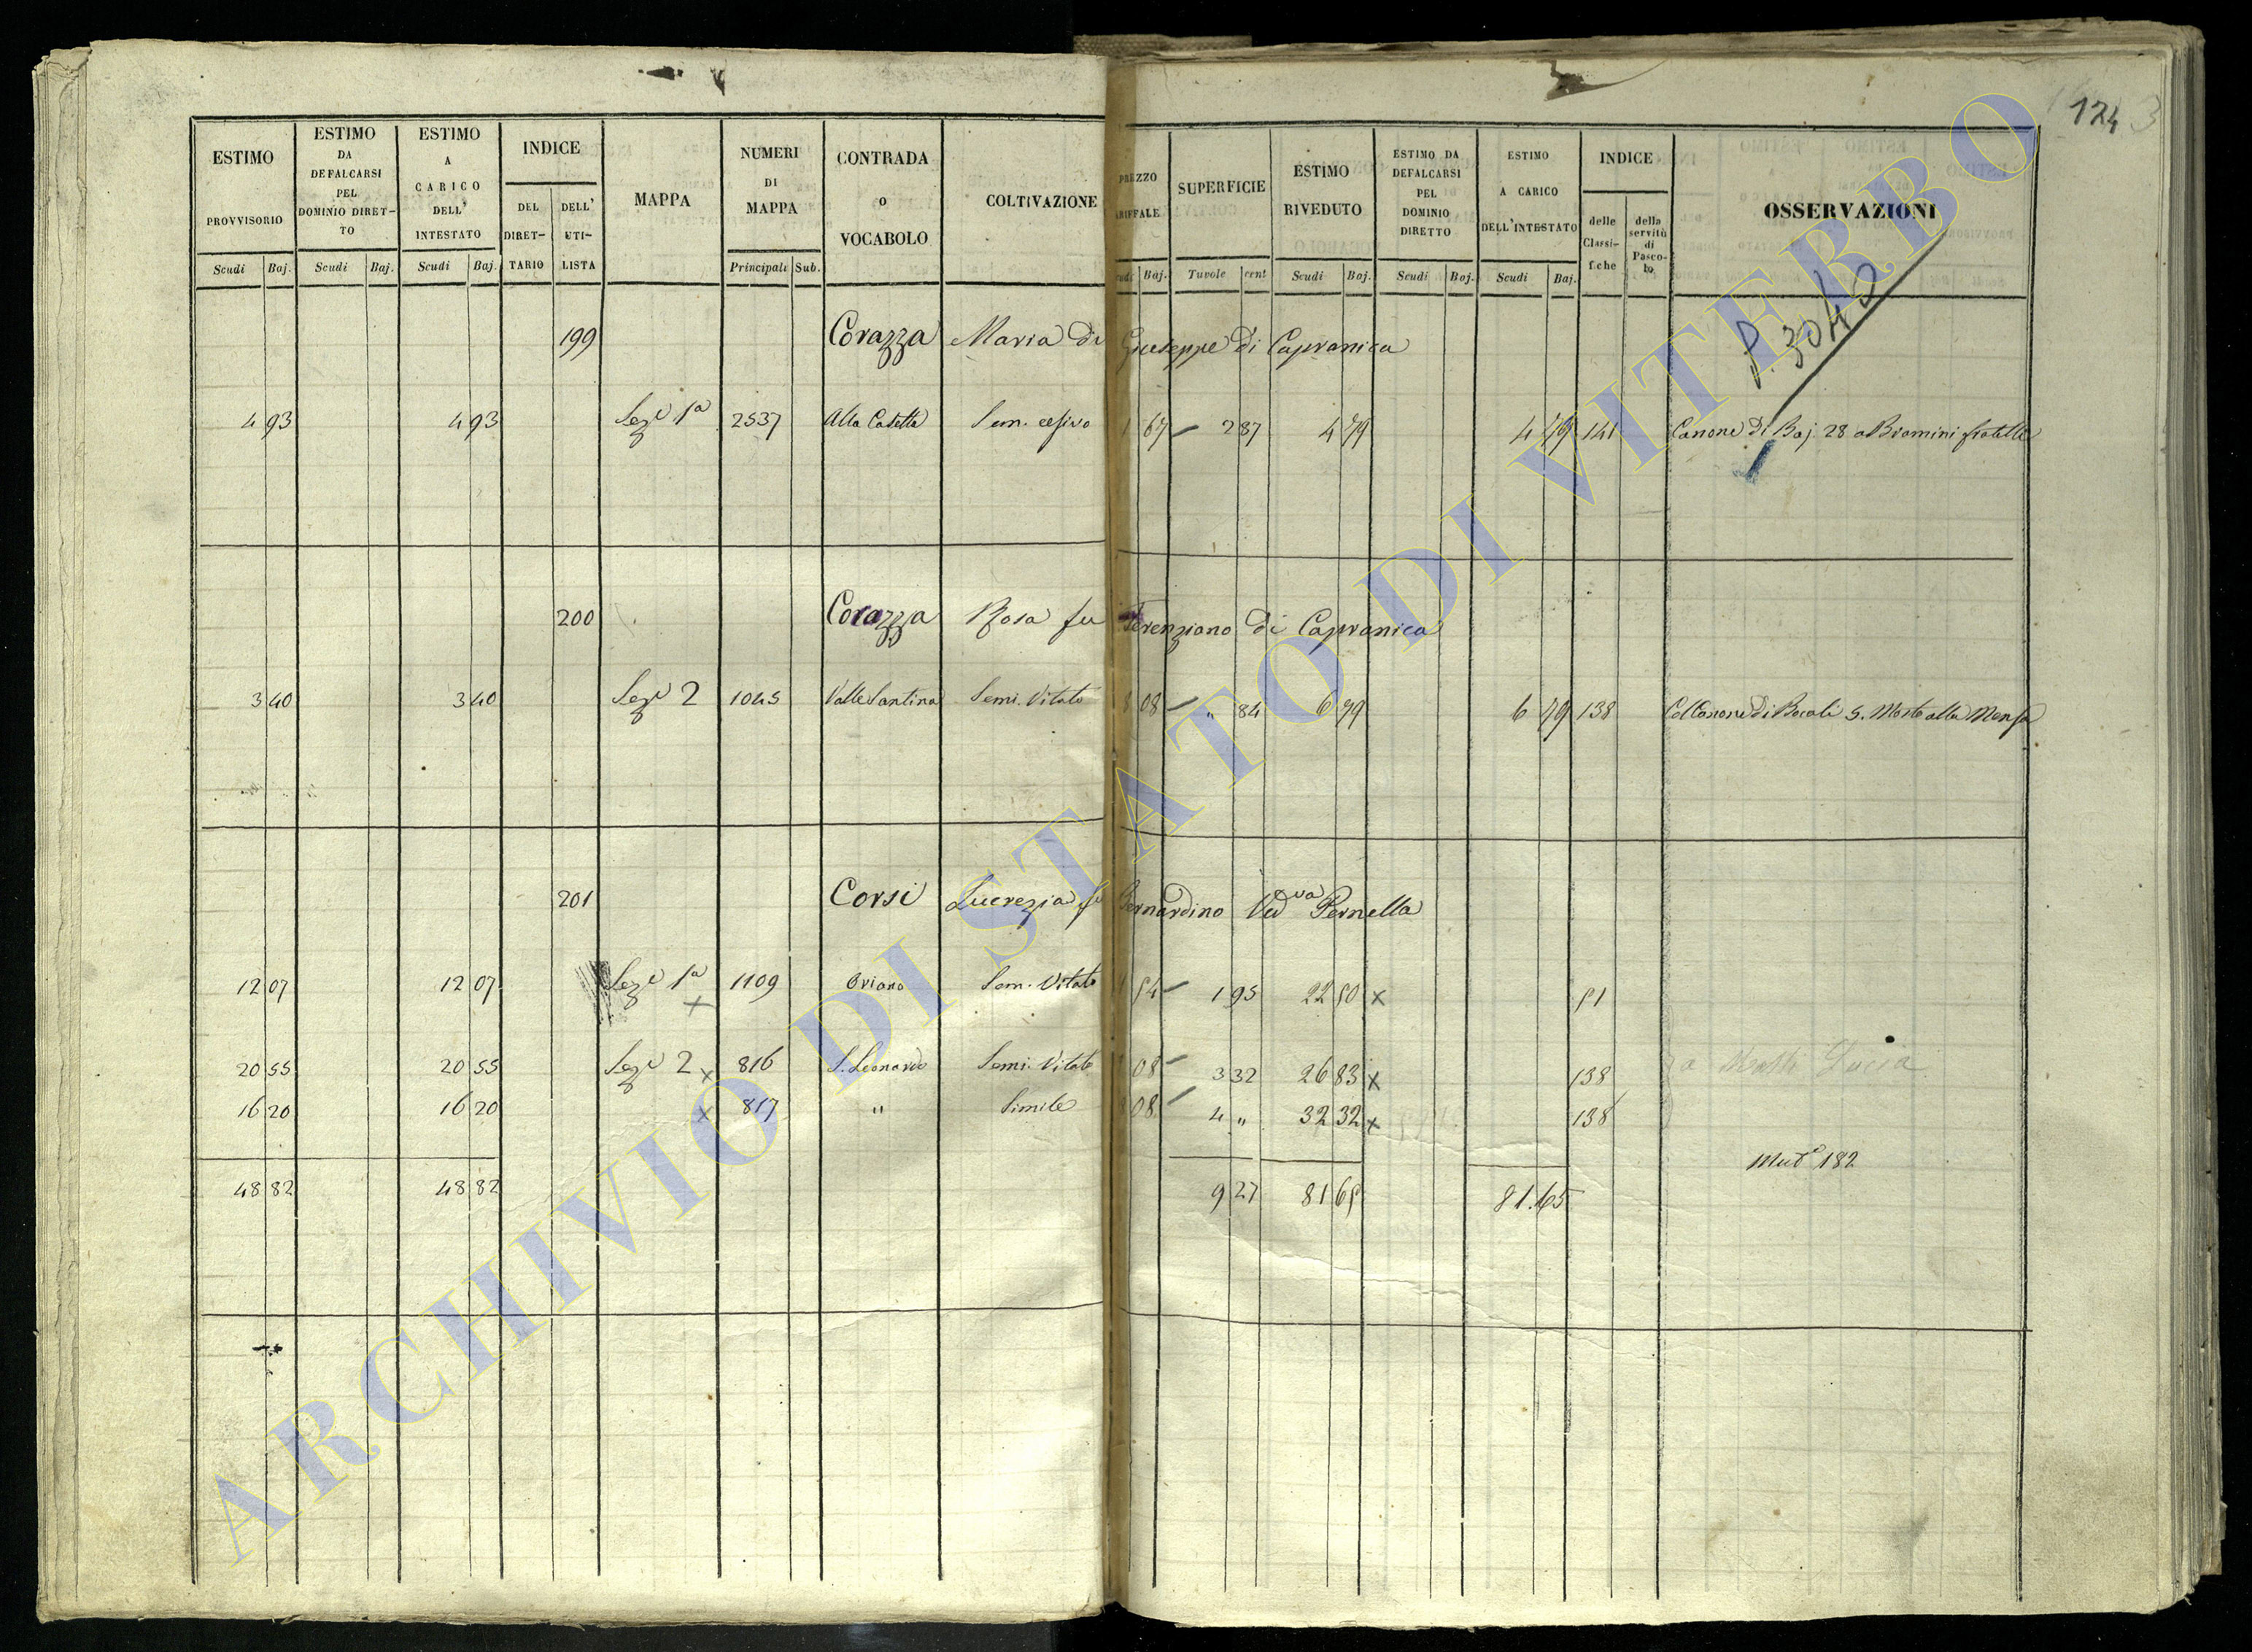 124
ESTIMO PROVVISORIO Scudi Baj.
ESTIMO DA DEFALCARSI PEL DOMINIO DIRETTO Scudi Baj.
ESTIMO A CARICO DELL' INTESTATO Scudi Baj.
INDICE DEL DIRETTARIO DELL' UTILISTA
MAPPA
NUMERI DI MAPPA Principali Sub.
CONTRADA o VOCABOLO
COLTIVAZIONE
PREZZO Baj.
SUPERFICIE Tavole cent
ESTIMO RIVEDUTO Scudi Baj.
ESTIMO DA DEFALCARSI PEL DOMINIO DIRETTO Scudi Baj.
ESTIMO A CARICO DELL'INTESTATO Scudi Baj.
INDICE delle Classifiche della servitù di Pascolo
OSSERVAZIONI
199 Corazza Maria di Giuseppe di Capranica
4 93 4 93 Seze 1a 2537 Alla Casetta Sem. 1 67 2 87 4 79 4 79 141 Canone di Baj. 28 a fratelli
200 Corazza Rosa fu Terenziano di Capranica
3 40 3 40 Seze 2 1045 Valle Santina Semi. Vitato 8 08 " 84 6 79 6 79 138 Col Canone di Bocali 5. Mosto alla Mensa
201 Corsi Lucrezia fu Bernardino Vedva Pernella
12 07 12 07 Sezе 1a x 1109 Oriano Sem. Vitato 1 95 22 50 x 51
20 55 20 55 Seze 2 x 816 S. Leonardo Semi. Vitato 08 3 32 26 83 x 138 a Lucia
16 20 16 20 x 817 " Simile 08 4 " 32 32 x 138
Muta 182
48 82 48 82 9 27 81 65 81.65
ARCHIVIO DI STATO DI VITERBO